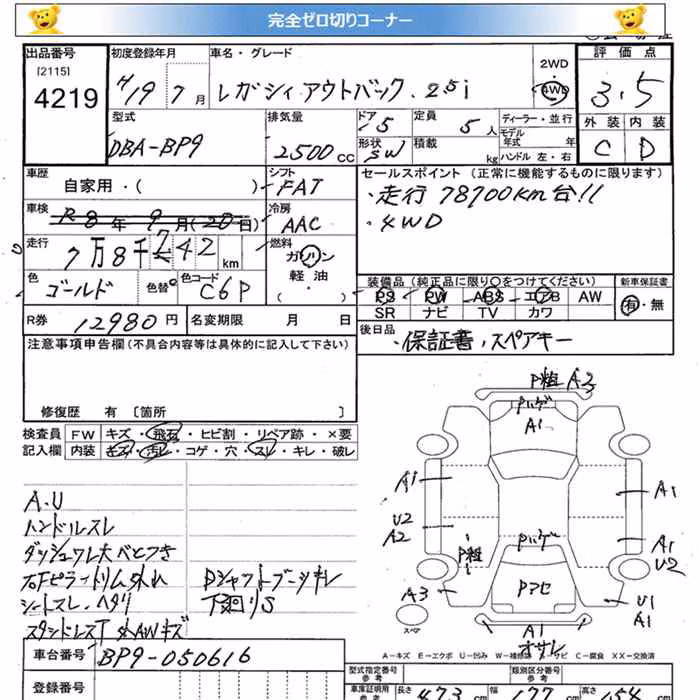 完全ゼロ切りコーナー
出品番号 初度登録年月 車名・グレード 2WD 評価点
[2115] 4219 H19年7月 レガシィ アウトバック 2.5i 4WD 3.5
型式 排気量 ドア 定員 ディーラー・並行 外装 内装
DBA-BP9 2500CC 5 5人 モデル年式 年 C D
形状 SW 積載 kg ハンドル 左・右
車歴 シフト セールスポイント (正常に機能するものに限ります)
自家用・( ) FAT ・走行 78700km台!!
車検 R8年9月(20日) 冷房 AAC ・4WD
走行 7万8千742km 燃料 ガソリン
軽油
色 ゴールド 色替 色コード C6P ・( )
装備品 (純正品に限り○をつけてください) 新車保証書
PS PW ABS エアB AW 有・無
SR ナビ TV カワ
R券 12980円 名変期限 月 日 後日品
・保証書,スペアキー
注意事項申告欄(不具合内容等は具体的に記入して下さい)
修復歴 有 [箇所 ]
検査員 FW キズ・飛石・ヒビ割・リペア跡・×要
記入欄 内装 キズ・汚レ・コゲ・穴・スレ・キレ・破レ
P粗 A3
Pハゲ
A1
A1 A1
U2
A2
P粗 Pハゲ A1
U2
Pアセ
A3 U1
A1
A1
オサレ
スペア
A.U
ハンドルスレ
ダッシュワレ大 べとつき
右Fピラートリム外れ Pシャフトブーツキレ
シートスレ.ヘタリ 下廻りS
スタッドレスT 外AWキズ
A=キズ E=エクボ U=凹み W=補修跡 S=サビ C=腐食 XX=交換済
車台番号 BP9-050616
型式指定番号 参考 類別区分番号 参考
登録番号
車庫証明用 参考 長さ 473cm 幅 177cm 高さ 154cm